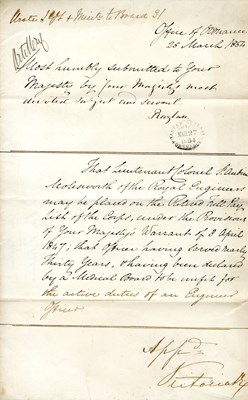 Office of Ordnance
25 March 1854
Most humbly submitted to Your
Majesty by Your Majesty's most
devoted Subject and servant
Raglan
That Lieutenant Colonel
Molesworth of the Royal Engineers
may be placed on the Retired Full Pay
List of the Corps, under the Provisions
of Your Majesty's Warrant of 3 April
1847; that Officer having Served nearly
Thirty Years, & having been declared
by a Medical Board to be unfit for
the active duties of an Engineer
Officer
Appd
Victoria R